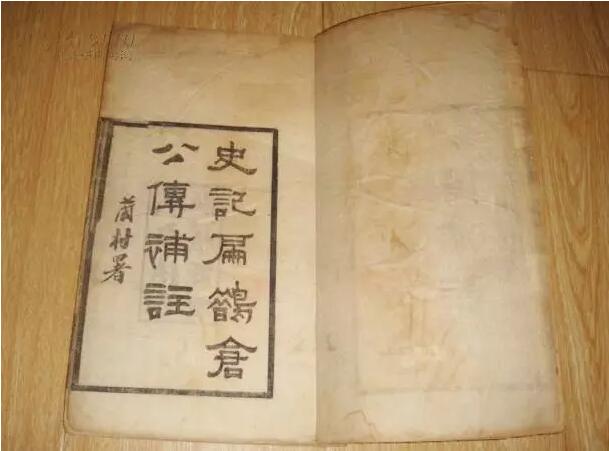 史記扁鵲倉
公傳補註
茵村署